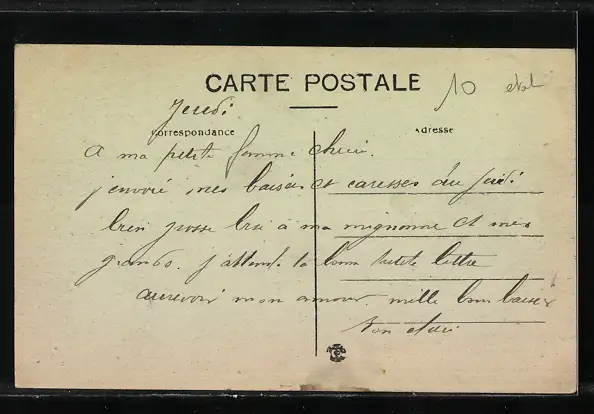 CARTE POSTALE
10
Jeudi
Correspondance
Adresse
A ma petite femme cherie.
j'envoie mes baisers et caresses du jeudi
bien grosse à ma mignonne et mes
grands. j'attends ta bonne petite lettre
aurevoir mon amour mille bons baisers
ton